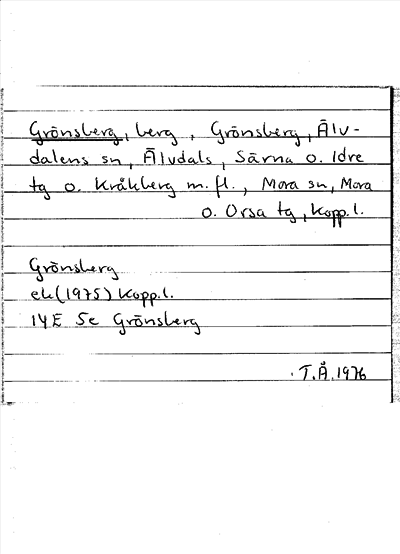 Grönsberg, berg, Grönsberg, Älv-
dalens sn, Älvdals, Särna o. Idre
tg o. Kråkberg m.fl., Mora sn, Mora
o. Orsa tg, Kopp.l.
Grönsberg
ek (1975) Kopp.l.
14E 5e Grönsberg
T.Å. 1976